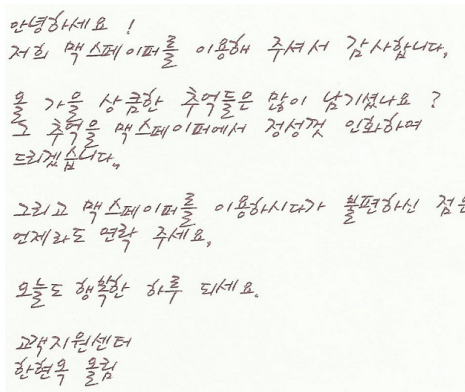 안녕하세요 !
저희 맥스페이퍼를 이용해 주셔서 감사합니다.
올 가을 상큼한 추억들은 많이 남기셨나요 ?
그 추억을 맥스페이퍼에서 정성껏 인화하여
드리겠습니다.
그리고 맥스페이퍼를 이용하시다가 불편하신 점은
언제라도 연락 주세요.
오늘도 행복한 하루 되세요.
고객지원센터
한현옥 올림